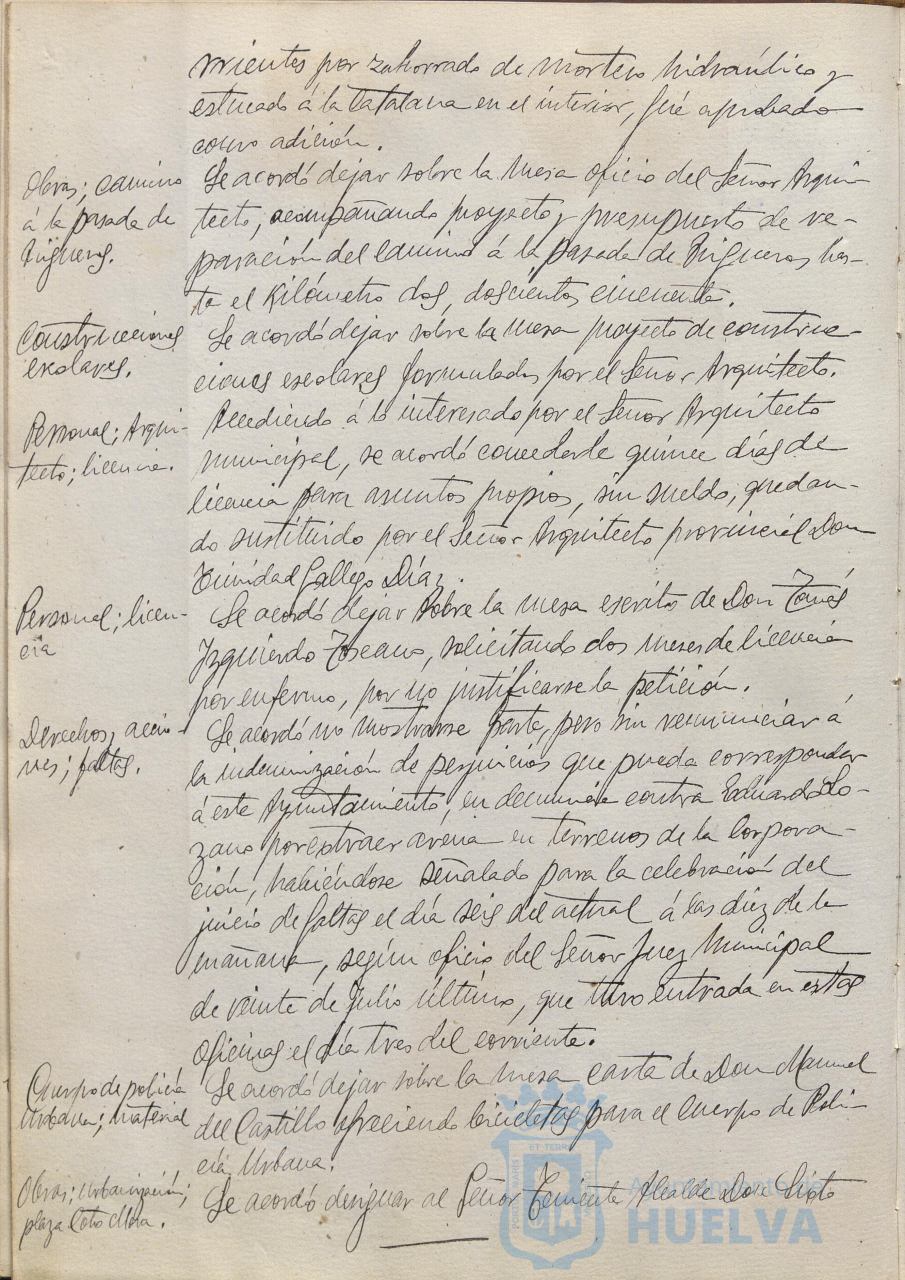 vrientes por zahorrado de mortero hidraúlico y
estucado á la Catalana en el interior, fué aprobado
como adición.
Obras; camino
á la pasada de
Trigueros.
Se acordó dejar sobre la mesa oficio del Señor Arqui-
tecto, acompañando proyecto y presupuesto de re-
paración del camino á la pasada de Trigueros has-
ta el Kilómetro dos, doscientos cincuenta.
Construcciones
escolares.
Se acordó dejar sobre la mesa proyecto de construc-
ciones escolares formulados por el Señor Arquitecto.
Personal; Arqui-
tecto; licencia.
Accediendo á lo interesado por el Señor Arquitecto
Municipal, se acordó concederle quince días de
licencia para asuntos propios, sin sueldo, quedan-
do sustituido por el Señor Arquitecto provincial Don
Trinidad Gallego Díaz.
Personal; licen-
cia
Se acordó dejar sobre la mesa escrito de Don Tomás
Izquierdo Toscano, solicitando dos meses de licencia
por enfermo, por no justificarse la petición.
Derechos y accio-
nes; faltas.
Se acordó no mostrarse parte, pero sin renunciar á
la indemnización de perjuicios que pueda corresponder
á este Ayuntamiento, en denuncia contra Eduardo Lo-
zano por extraer arena en terrenos de la Corpora-
ción, habiéndose señalado para la celebración del
juicio de faltas el día seis del actual á las diez de la
mañana, según oficio del Señor Juez Municipal
de veinte de Julio último, que tuvo entrada en estas
oficinas el día tres del corriente.
Cuerpo de policía
Urbana; material
Se acordó dejar sobre la mesa carta de Don Manuel
del Castillo ofreciendo bicicletas para el Cuerpo de Poli-
cía Urbana.
Obras; Urbanización;
plaza Coto Mora.
Se acordó designar al Señor Teniente Alcalde Don Sixto
Ayuntamiento de
HUELVA